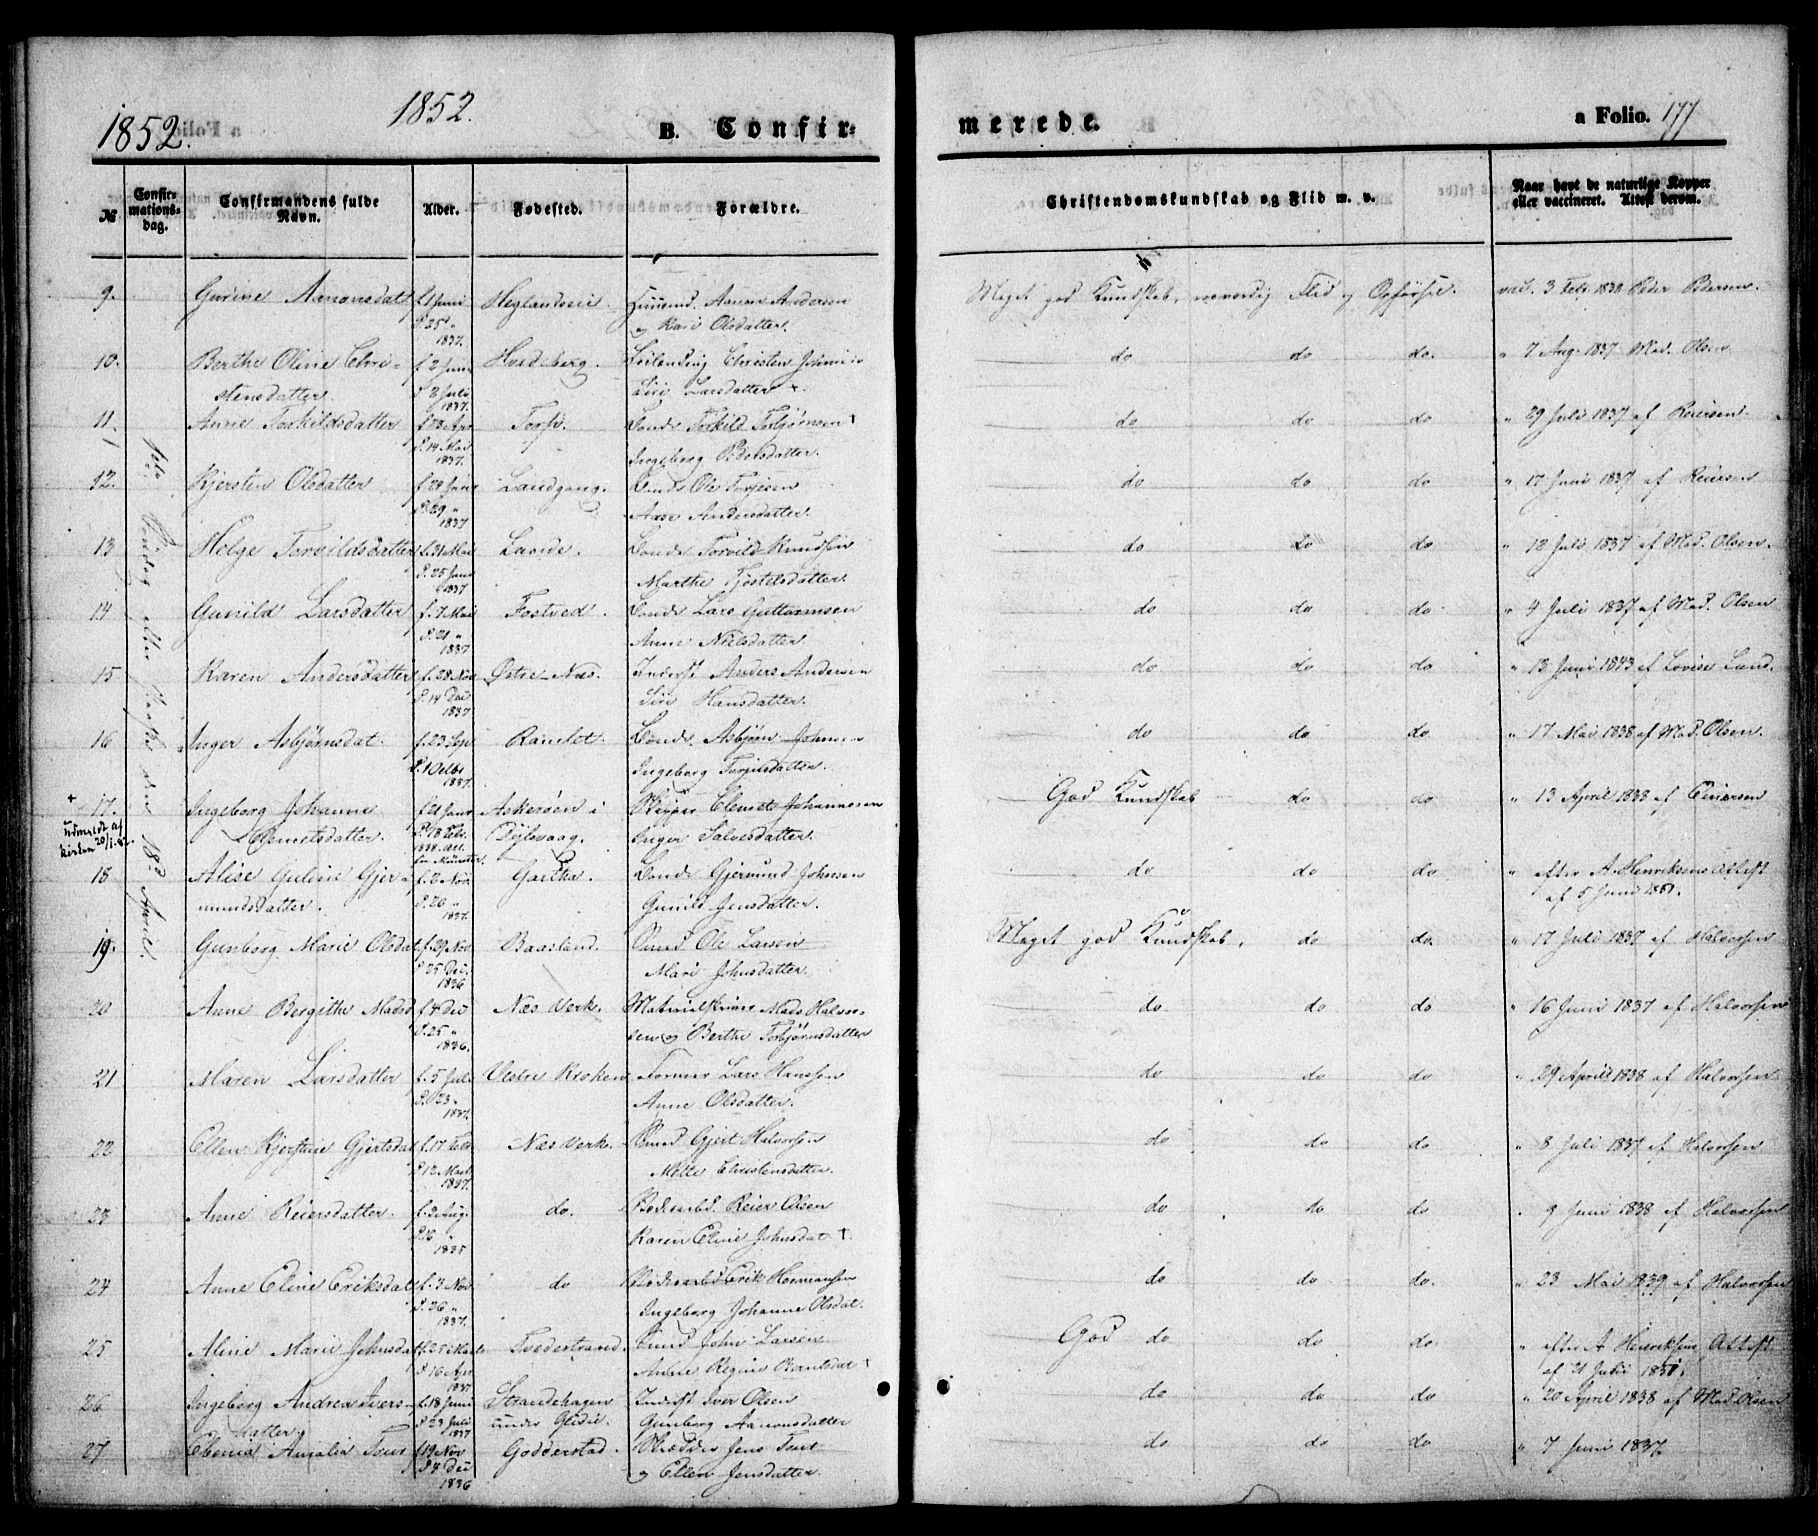 1852.
1852.
B. Confir-
merede.
a Folio. 177
№
Confir-
mations-
dag.
Confirmandens fulde
Navn.
Alder.
Fødested.
Forældre.
Christendomskundskab og Flid m. v.
Naar havt de naturlige Kopper
eller vaccineret. Attest derom.
9. Gurine Aanonsdat f. 1 Juni Heglandseie Aanon Andersen Meget god Kundskab, Flid og Opførsel. vac. 3 Febr Peder Pedersen.
P. 25 " og Kari Olsdatter.
1837.
10. Berthe Oline Chri- f. 2 Juni Christen do do do. " 7 Aug. 1837 Mad. Olsen
stensdatter. P. 2 Juli Siri Larsdatter +.
1837.
11. Anne Torkildsdatter f. 23 Apr Torp. Bonde Torkild Torbjørnsen † do do do " 29 Juli 1837 af Reiersen.
P. 14 Mai Ingeborg Pedersdatter.
1837.
12. Kjersten Olsdatter f. 29 Janr Landgang. Bonde Ole Terjesen do do do " 17 Juni 1837 af Reiersen
P. 29 " Aase Andersdatter.
1837
13 Helge Torvildsdatter f. 31 Mai Lunde. Bonde Torvild Knudsen do do do " 12 Juli 1837 af Mad. Olsen.
P. 25 Juni Marthe Kjøstelsdatter.
1837
14 Gunild Larsdatter f. 7 Mai Fostved. Bonde Lars Guttormsen do do do " 4 Juli 1837 af Mad. Olsen
P. 21 " Anne Nielsdatter.
1837
15 Karen Andersdatter f. 28 Nov Østre-Næs. Inderst Anders Andersen do do do " 13 Juni 1843 af Lovise Lund.
P. 14 Dec Siri Hansdatter.
1837
16 Inger Asbjørnsdat. f. 23 Sep Ramlet. Bonde Asbjørn Johnsen do do do " 17 Mai 1838 af Mad. Olsen.
P. 1 Octbr Ingeborg Terjesdatter.
1837.
+
17. Ingeborg Johanne f. 21 Janr Askerøen i Skipper Clemet Johannesen God Kundskab do do " 13 April 1838 af
Udmeldt af
kirken
Clemetsdatter. P. 18 Febr. Dybvaag. Inger Salvesdatter
1838. Att.
18 Alise Guline Gjer- f. 2 Nov. Gartha. Bonde Gjermund Johnsen do do do " efter A. Henriksens Attest
mundsdatter. P. 26 " Gunild Jensdatter. af 5 Juni 1851.
1837.
19. Gunborg Marie Olsdat f. 29 Nov Baasland. Smed Ole Larsen Meget god Kundskab, do do. " 17 Juli 1837 af Halvorsen
P 25 Dec. Mari Johnsdatter.
1836
20 Anne Bergithe Madsd f. 4 Dec Næs Verk. Mads Halvor- do. do do " 16 Juni 1837 af Halvorsen
P. 25 " sen og Berthe Torbjørnsdatter
1836.
21 Maren Larsdatter f. 5 Juli Vestre Kroken. Former Lars Hanssen do do do " 29 April 1838 af Halvorsen
P. 23 " Anne Olsdatter.
1837.
22 Ellen Kjerstine Gjertsdat f. 17 Febr Næs Verk. Smed Gjert Halvorsen do do do " 8 Juli 1837 af Halvorsen
P 12 Marts Mette Christensdatter.
1837.
23 Anne Reiersdatter. f. 2 Aug. do. Reier Olsen do do do " 9 Juni 1838 af Halvorsen
P. 16 " Karen Eline Johnsdat †.
1835
24 Anne Eline Eriksdat f. 3 Nov do Erik Hermansen do do do. " 23 Mai 1839 af Halvorsen
P. 26 " Ingeborg Johanne Olsdat.
1837.
25 Aline Marie Johnsdat f. 25 Marts Tvedestrand. Smed John Larsen God do do do " efter A Henriksens Attest
P 16 Apr Anne Regine †. af 21 Juli 1851.
1837
26 Ingeborg Andrea Ivers- f. 18 Juni Strandehagen Inderst Iver Olsen do do do " 20 April 1838 af Mad Olsen
datter P 23 Juli under Gunborg Aanonsdatter
1837
27 Amalia f 19 Nov Godderstad. Jens do do do " 7 Juni 1837.
P 4 Dec og Ellen Jensdatter.
1836
Søndag efter Paaske den 18d April.